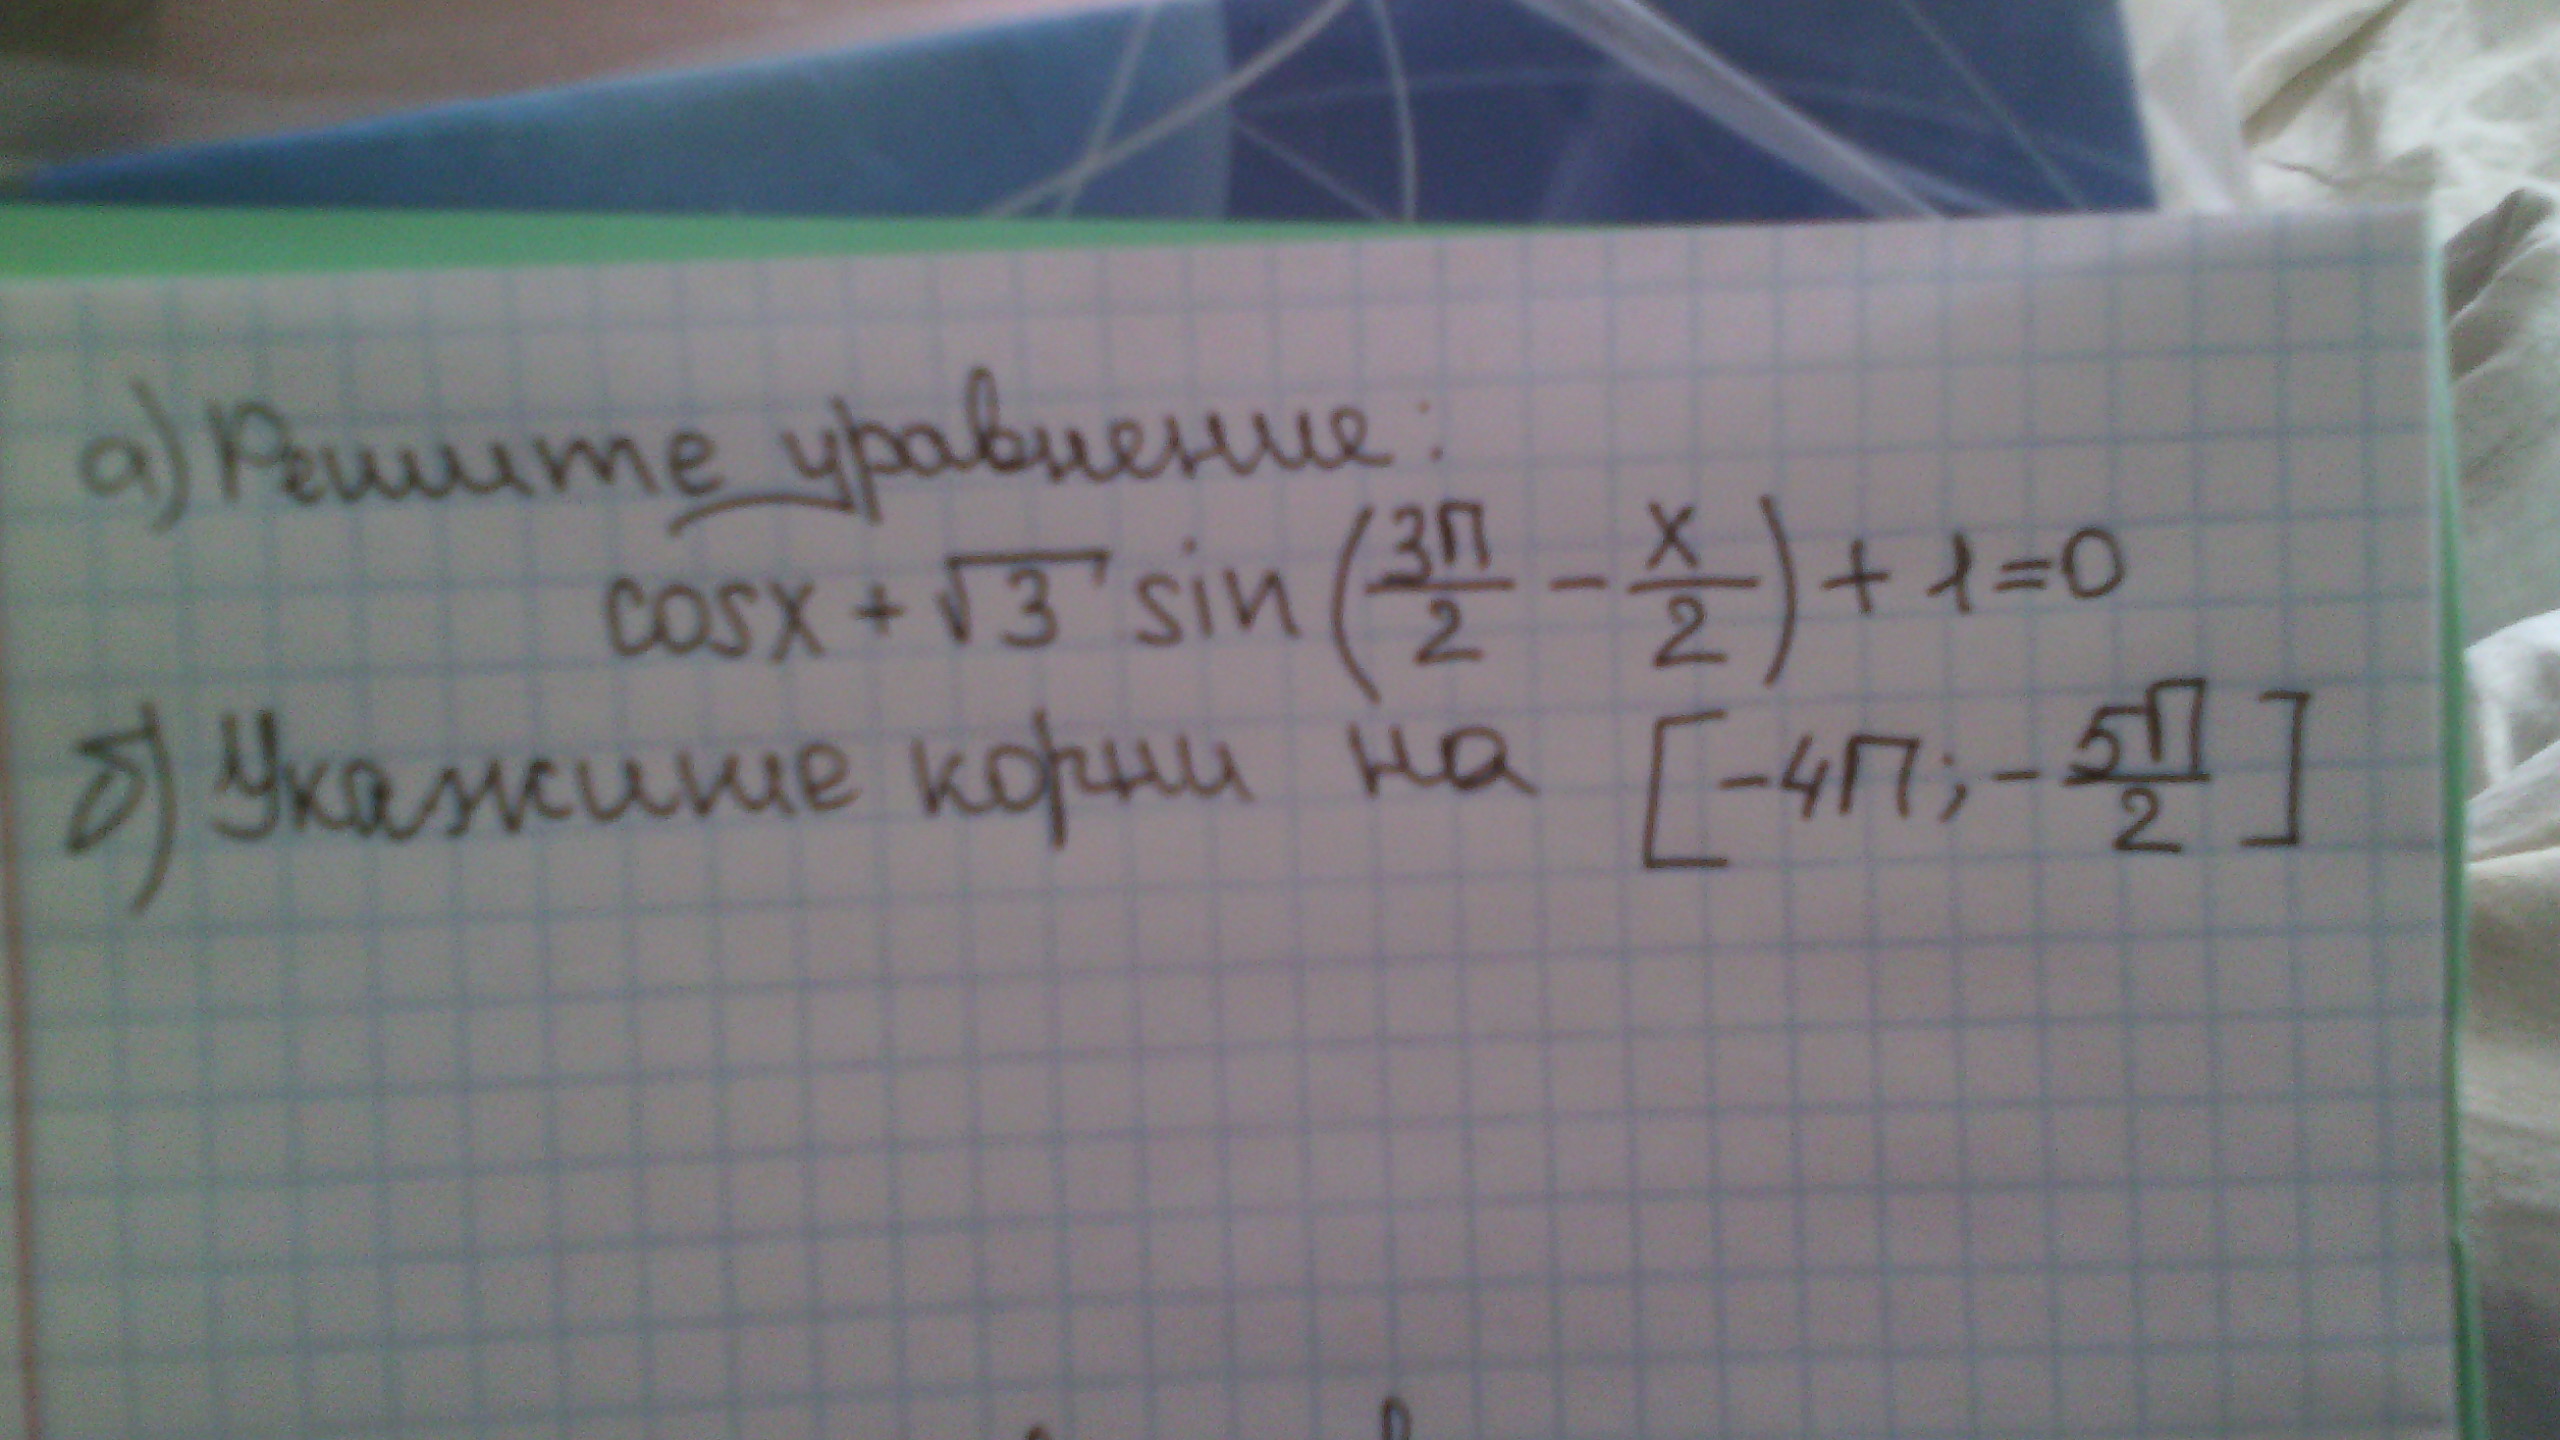 а) Решите уравнение:
cosx + √3 sin (3π/2 - x/2) + 1 = 0
б) Укажите корни на [-4π; -5π/2]